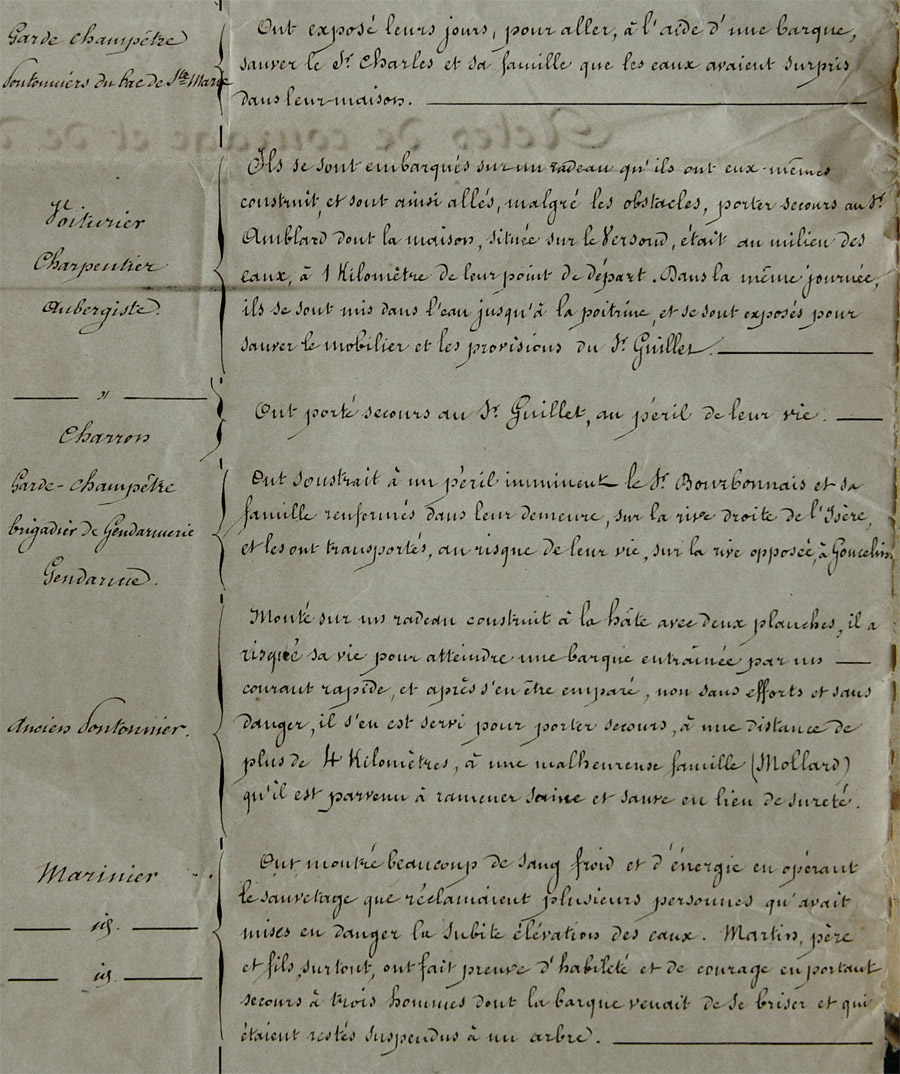 Garde champêtre
Pontonniers du bac de Ste Marie
Ont exposé leurs jours, pour aller, à l'aide d'une barque,
sauver le Sr. Charles et sa famille que les eaux avaient surpris
dans leur maison.
Actes de courage et de d
Voiturier
Charpentier
Aubergiste.
Ils se sont embarqués sur un radeau qu'ils ont eux-mêmes
construit, et sont ainsi allés, malgré les obstacles, porter secours au Sr.
Amblard dont la maison, située sur le Versoud, était au milieu des
eaux, à 1 Kilomètre de leur point de départ. Dans la même journée,
ils se sont mis dans l'eau jusqu'à la poitrine, et se sont exposés pour
sauver le mobilier et les provisions du Sr. Guillet.
"
Charron
Ont porté secours au Sr. Guillet, au péril de leur vie.
Garde-champêtre
brigadier de Gendarmerie
Gendarme.
Ont soustrait à un péril imminent le Sr. Bourbonnais et sa
famille renfermés dans leur demeure, sur la rive droite de l'Isère,
et les ont transportés, au risque de leur vie, sur la rive opposée, à Goncelin
Ancien Pontonnier.
Monté sur un radeau construit à la hâte avec deux planches, il a
risqué sa vie pour atteindre une barque entraînée par un
courant rapide, et après s'en être emparé, non sans efforts et sans
danger, il s'en est servi pour porter secours, à une distance de
plus de 4 Kilomètres, à une malheureuse famille (Mollard)
qu'il est parvenu à ramener saine et sauve en lieu de sureté.
Marinier
id.
id.
Ont montré beaucoup de sang froid et d'énergie en opérant
le sauvetage que réclamaient plusieurs personnes qu'avait
mises en danger la subite élévation des eaux. Martin, père
et fils, surtout, ont fait preuve d'habileté et de courage en portant
secours à trois hommes dont la barque venait de se briser et qui
étaient restés suspendus à un arbre.